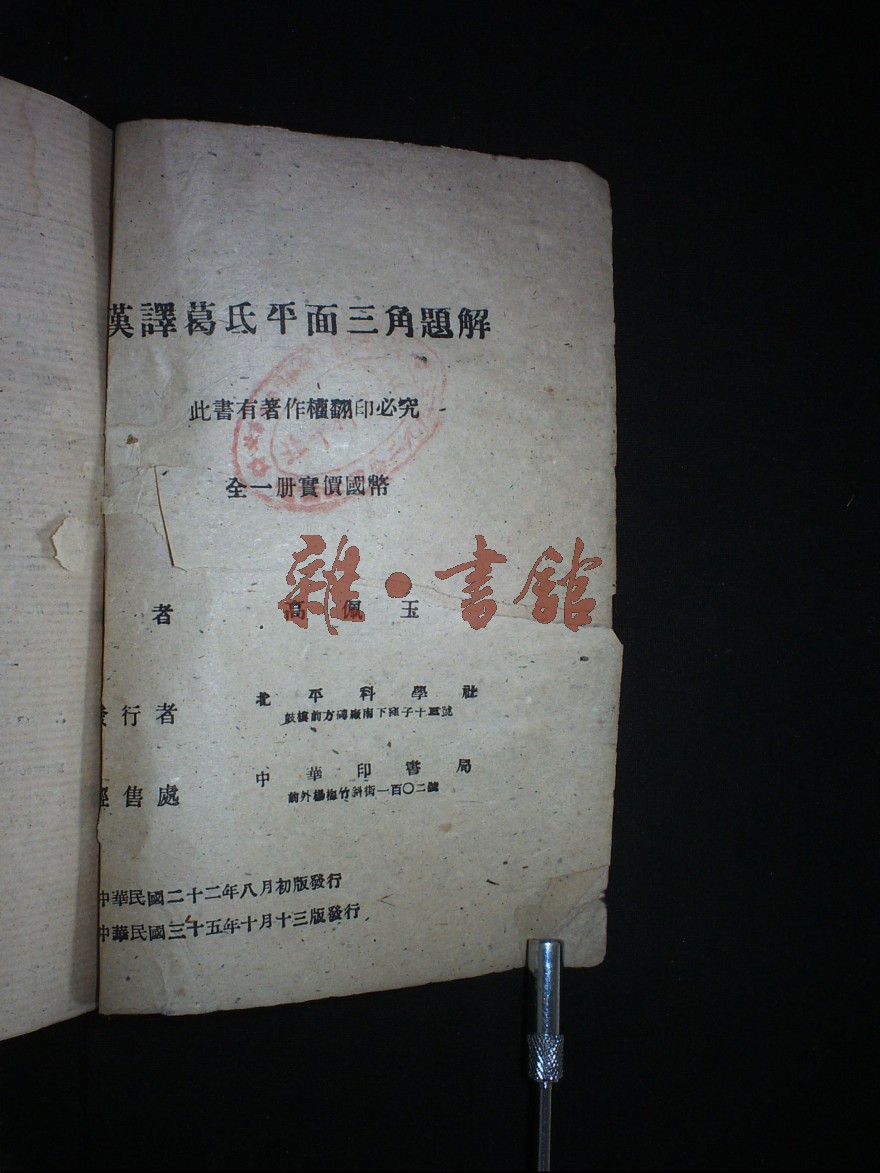 漢譯葛氏平面三角題解
此書有著作權翻印必究
全一册實價國幣
雜·書館
者 高佩玉
發行者 北平科學社
鼓樓前方磚廠南下窪子十三號
經售處 中華印書局
前外楊梅竹斜街一百〇二號
中華民國二十二年八月初版發行
中華民國三十五年十月十三版發行